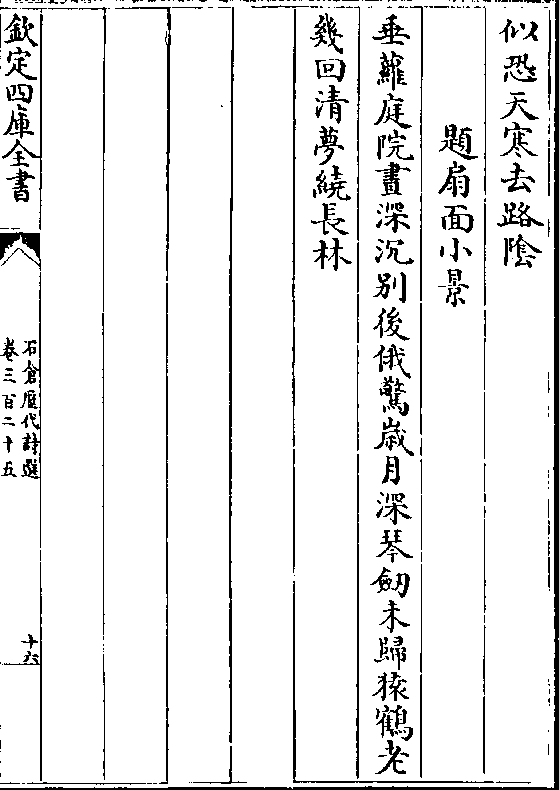 似恐天寒去路陰
題扇面小景
垂蘿庭院晝深沉別後俄驚歳月深琴劒未歸猿鶴老
幾回清夢繞長林
欽定四庫全書
石倉歴代詩選
卷三百二十五
十六